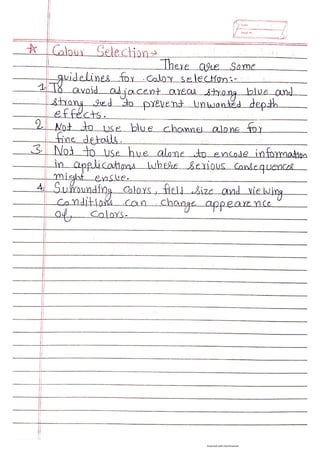 ☆ Colour Selection →
There are some
guidelines for color selections:-
1. To avoid adjacent areas strong blue and
strong red to prevent unwanted depth
effects.
2. Not to use blue channel alone for
fine details.
3. Not to use hue alone to encode information
in applications where serious consequences
might ensue.
4. Surrounding colors, field size and viewing
conditions can change appearence
of colors.